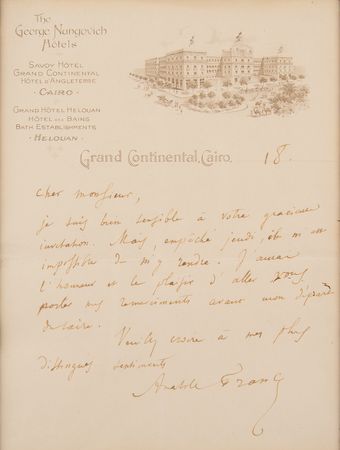 The
George Nungovich
Hotels
Savoy Hôtel
Grand Continental
Hôtel d'Angleterre
- Cairo -
Grand Hôtel Helouan
Hôtel des Bains
Bath Establishments
- Helouan -
Grand Continental, Cairo.
18.
Cher monsieur,
je suis bien sensible à votre gracieuse
invitation. Mais, empêché jeudi, il m'est
impossible de m'y rendre. J'aurai
l'honneur et le plaisir d'aller vous
porter mes remerciements avant mon départ
du Caire.
Veuillez croire à mes plus
distingués sentiments
Anatole France